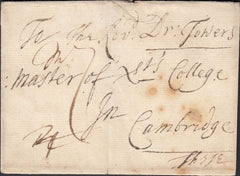 To The Rev.d Dr: Towers
Master of Xsts College
In
Cambridge
These